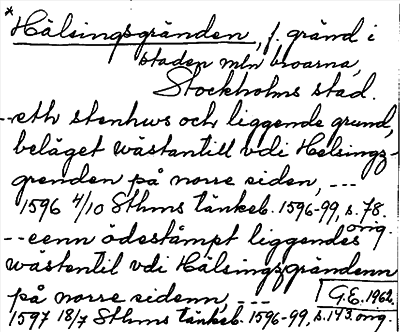 *
Hälsingsgränden, f. gränd i
staden mln broarna,
Stockholms stad.
--eth stenhws och liggende grund,
beläget wästantill vdi Helsingz-
grenden på norre siden, ---
1596 4/10 Sthms tänkeb. 1596-99, s. 78.
orig.
--eenn ödestämpt liggendes
wästantil vdi Hälsingzgrändenn
på norre sidenn, ---
G.E. 1962.
1597 18/7 Sthms tänkeb. 1596-99, s. 143. orig.